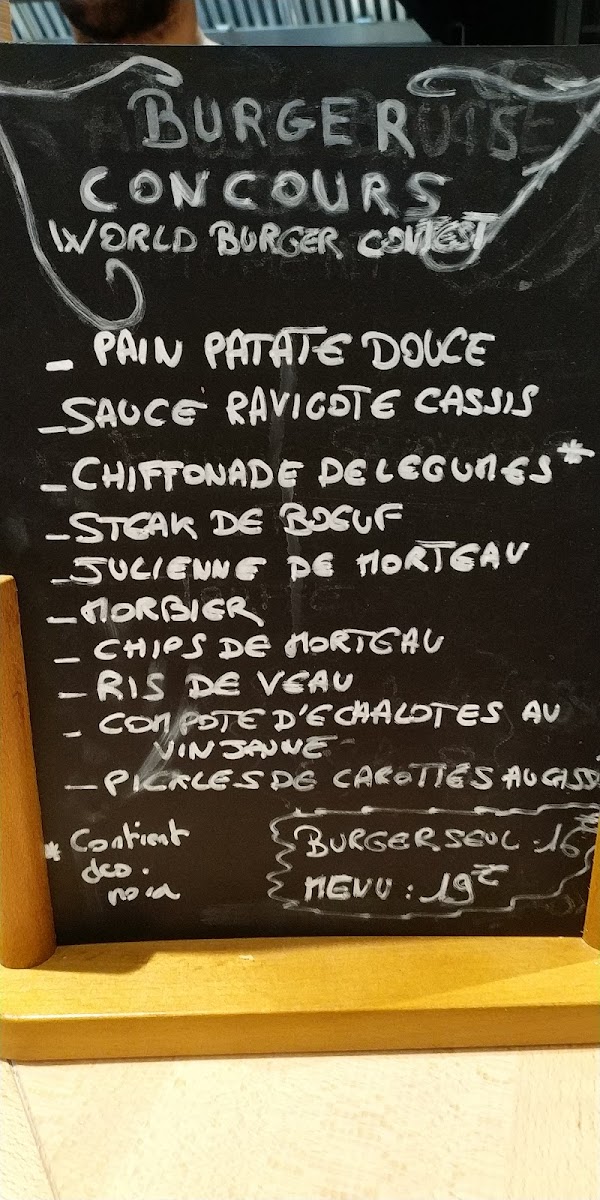 BURGER
CONCOURS
WORLD BURGER CONTEST
- PAIN PATATE DOUCE
- SAUCE RAVIGOTE CASSIS
- CHIFFONADE DE LEGUMES*
- STEAK DE BOEUF
- JULIENNE DE MORTEAU
- MORBIER
- CHIPS DE MORTEAU
- RIS DE VEAU
- COMPOTE D'ECHALOTES AU
VIN JAUNE
- PICKLES DE CAROTTES AU CASS
* Contient
des
noix
BURGER SEUL : 16€
MENU : 19€